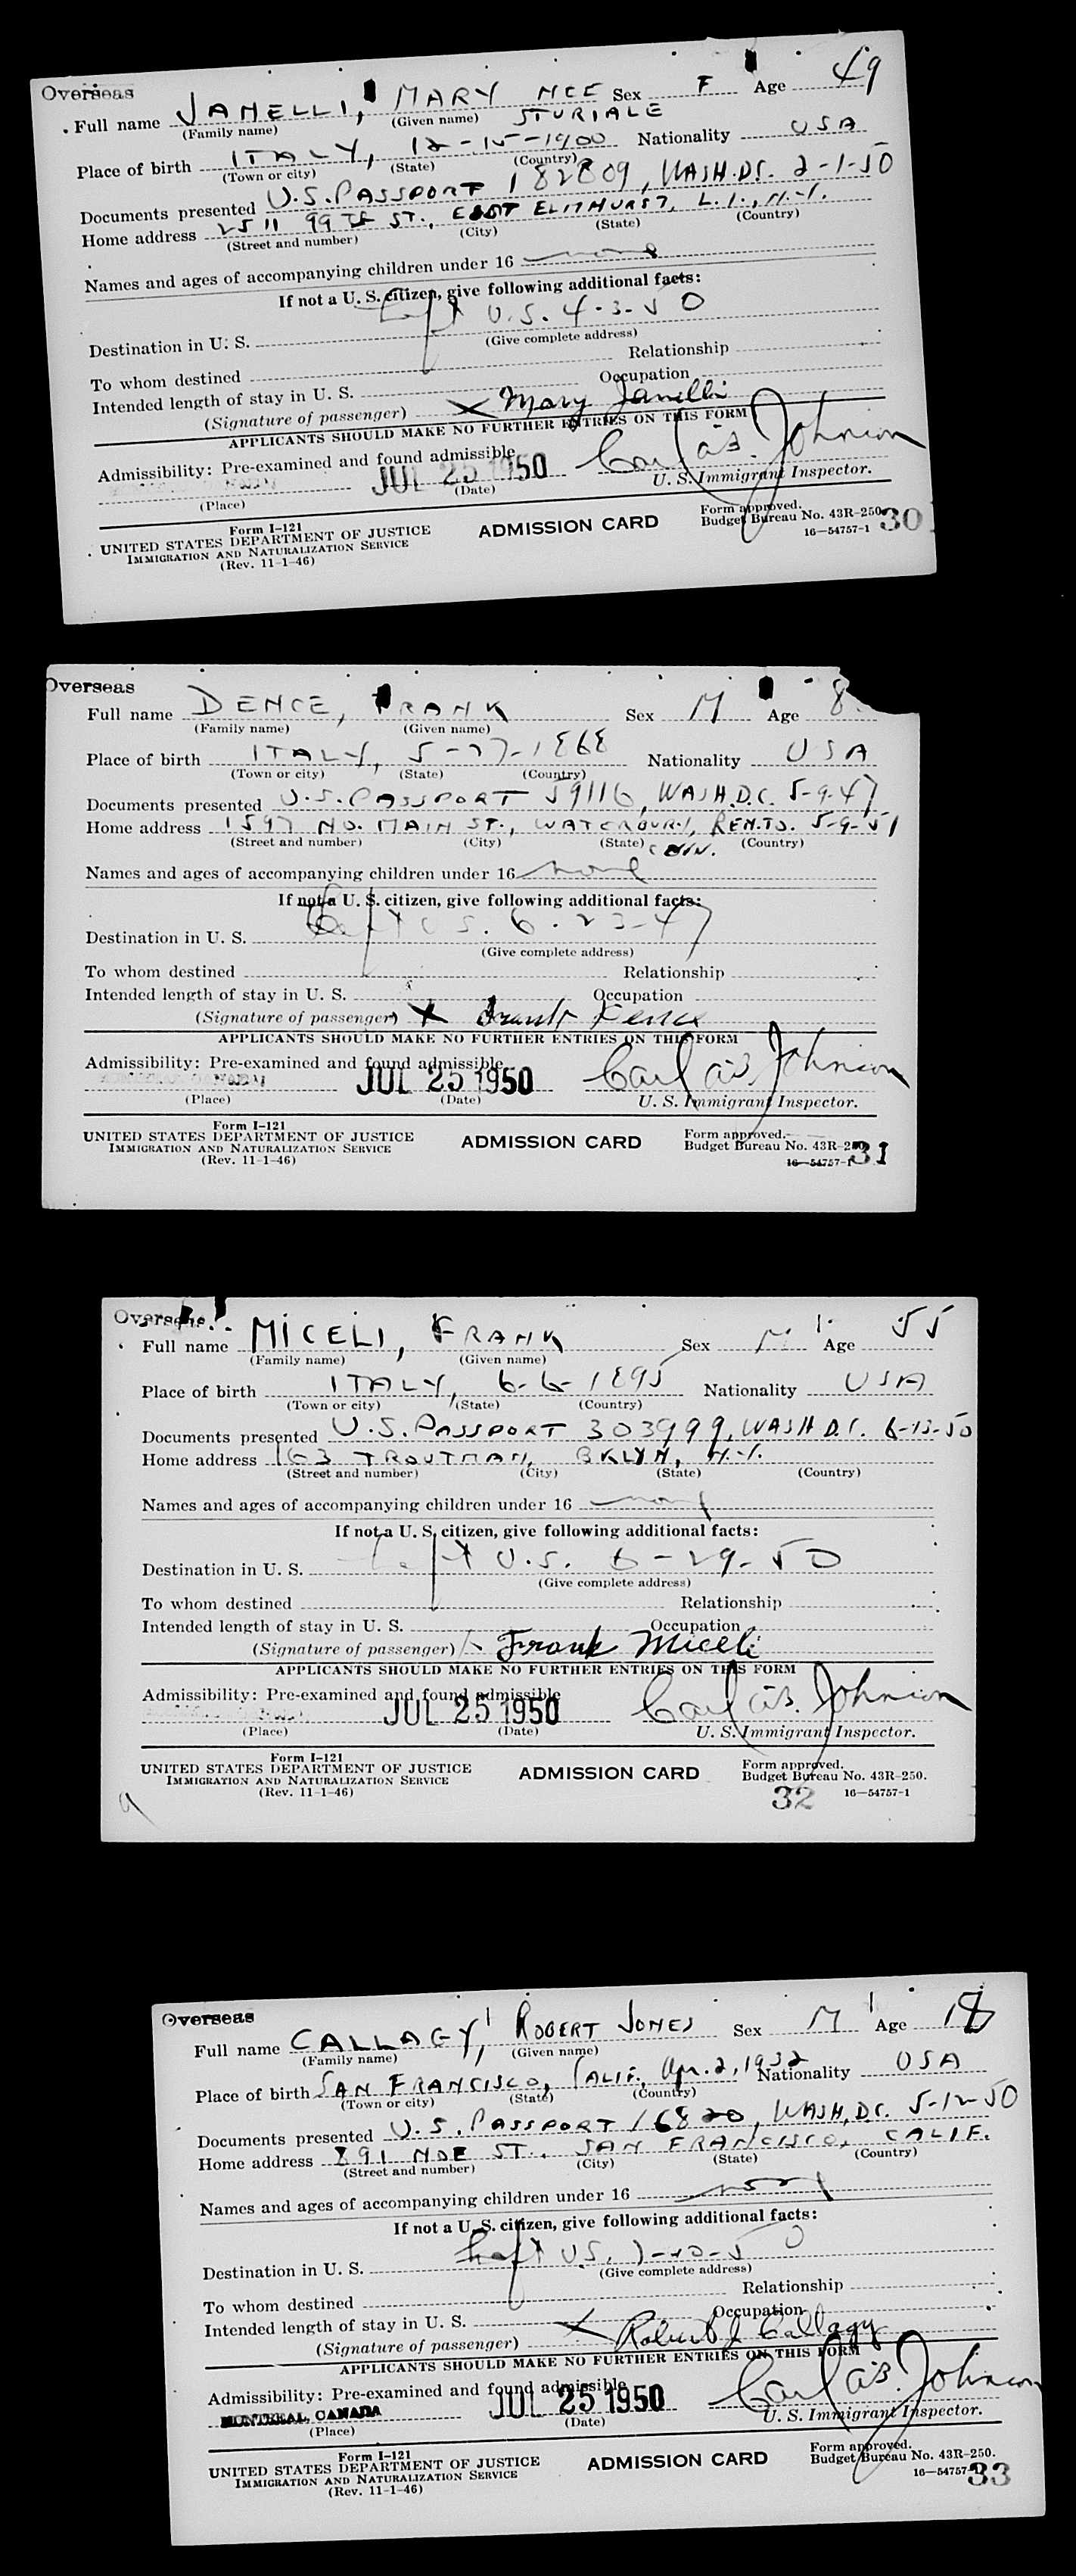 Overseas
Full name JANELLI, MARY NEE Sex F Age 49
(Family name) (Given name) STURIALE
Place of birth ITALY, 12-15-1900 Nationality USA
(Town or city) (State) (Country)
Documents presented U.S. PASSPORT 182809, WASH.D.C. 2-1-50
Home address 2511 99TH ST., EAST ELMHURST, L.I., N.Y.
(Street and number) (City) (State) (Country)
Names and ages of accompanying children under 16 none
If not a U. S. citizen, give following additional facts:
Destination in U. S. Left U.S. 4-3-50
(Give complete address)
To whom destined Relationship
Intended length of stay in U. S. Occupation
(Signature of passenger) X Mary Janelli
APPLICANTS SHOULD MAKE NO FURTHER ENTRIES ON THIS FORM
Admissibility: Pre-examined and found admissible
JUL 25 1950 Carl A.B. Johnson
(Place) (Date) U. S. Immigrant Inspector.
Form I-121
UNITED STATES DEPARTMENT OF JUSTICE
IMMIGRATION AND NATURALIZATION SERVICE
(Rev. 11-1-46)
ADMISSION CARD
Form approved.
Budget Bureau No. 43R-250.
16—54757-1 30
Overseas
Full name DENCE, FRANK Sex M Age 8
(Family name) (Given name)
Place of birth ITALY, 5-27-1868 Nationality USA
(Town or city) (State) (Country)
Documents presented U.S. PASSPORT 59116, WASH.D.C. 5-9-47
Home address 1597 NO. MAIN ST., WATERBURY, REN.TO. 5-9-51
(Street and number) (City) (State) CONN. (Country)
Names and ages of accompanying children under 16 none
If not a U. S. citizen, give following additional facts:
Destination in U. S. Left US. 6-23-47
(Give complete address)
To whom destined Relationship
Intended length of stay in U. S. Occupation
(Signature of passenger) X Frank Dence
APPLICANTS SHOULD MAKE NO FURTHER ENTRIES ON THIS FORM
Admissibility: Pre-examined and found admissible
JUL 25 1950 Carl A.B. Johnson
(Place) (Date) U. S. Immigrant Inspector.
Form I-121
UNITED STATES DEPARTMENT OF JUSTICE
IMMIGRATION AND NATURALIZATION SERVICE
(Rev. 11-1-46)
ADMISSION CARD
Form approved.
Budget Bureau No. 43R-250.
16—54757-1 31
Overseas
Full name MICELI, FRANK Sex M Age 55
(Family name) (Given name)
Place of birth ITALY, 6-6-1895 Nationality USA
(Town or city) (State) (Country)
Documents presented U.S. PASSPORT 303999, WASH D.C. 6-13-50
Home address 163 TROUTMAN, BKLYN, N.Y.
(Street and number) (City) (State) (Country)
Names and ages of accompanying children under 16 none
If not a U. S. citizen, give following additional facts:
Destination in U. S. Left U.S. 6-29-50
(Give complete address)
To whom destined Relationship
Intended length of stay in U. S. Occupation
(Signature of passenger) Frank Miceli
APPLICANTS SHOULD MAKE NO FURTHER ENTRIES ON THIS FORM
Admissibility: Pre-examined and found admissible
JUL 25 1950 Carl A.B. Johnson
(Place) (Date) U. S. Immigrant Inspector.
Form I-121
UNITED STATES DEPARTMENT OF JUSTICE
IMMIGRATION AND NATURALIZATION SERVICE
(Rev. 11-1-46)
ADMISSION CARD
Form approved.
Budget Bureau No. 43R-250.
32 16—54757-1
Overseas
Full name CALLAGY, ROBERT JONES Sex M Age 18
(Family name) (Given name)
Place of birth SAN FRANCISCO, CALIF., Apr. 2, 1932 Nationality USA
(Town or city) (State) (Country)
Documents presented U.S. PASSPORT 16820, WASH.D.C. 5-12-50
Home address 891 NOE ST., SAN FRANCISCO, CALIF.
(Street and number) (City) (State) (Country)
Names and ages of accompanying children under 16 none
If not a U. S. citizen, give following additional facts:
Destination in U. S. Left U.S.
(Give complete address)
To whom destined Relationship
Intended length of stay in U. S. Occupation
(Signature of passenger) X Robert J Callagy
APPLICANTS SHOULD MAKE NO FURTHER ENTRIES ON THIS FORM
Admissibility: Pre-examined and found admissible
MONTREAL, CANADA JUL 25 1950 Carl A.B. Johnson
(Place) (Date) U. S. Immigrant Inspector.
Form I-121
UNITED STATES DEPARTMENT OF JUSTICE
IMMIGRATION AND NATURALIZATION SERVICE
(Rev. 11-1-46)
ADMISSION CARD
Form approved.
Budget Bureau No. 43R-250.
16—54757-1 33